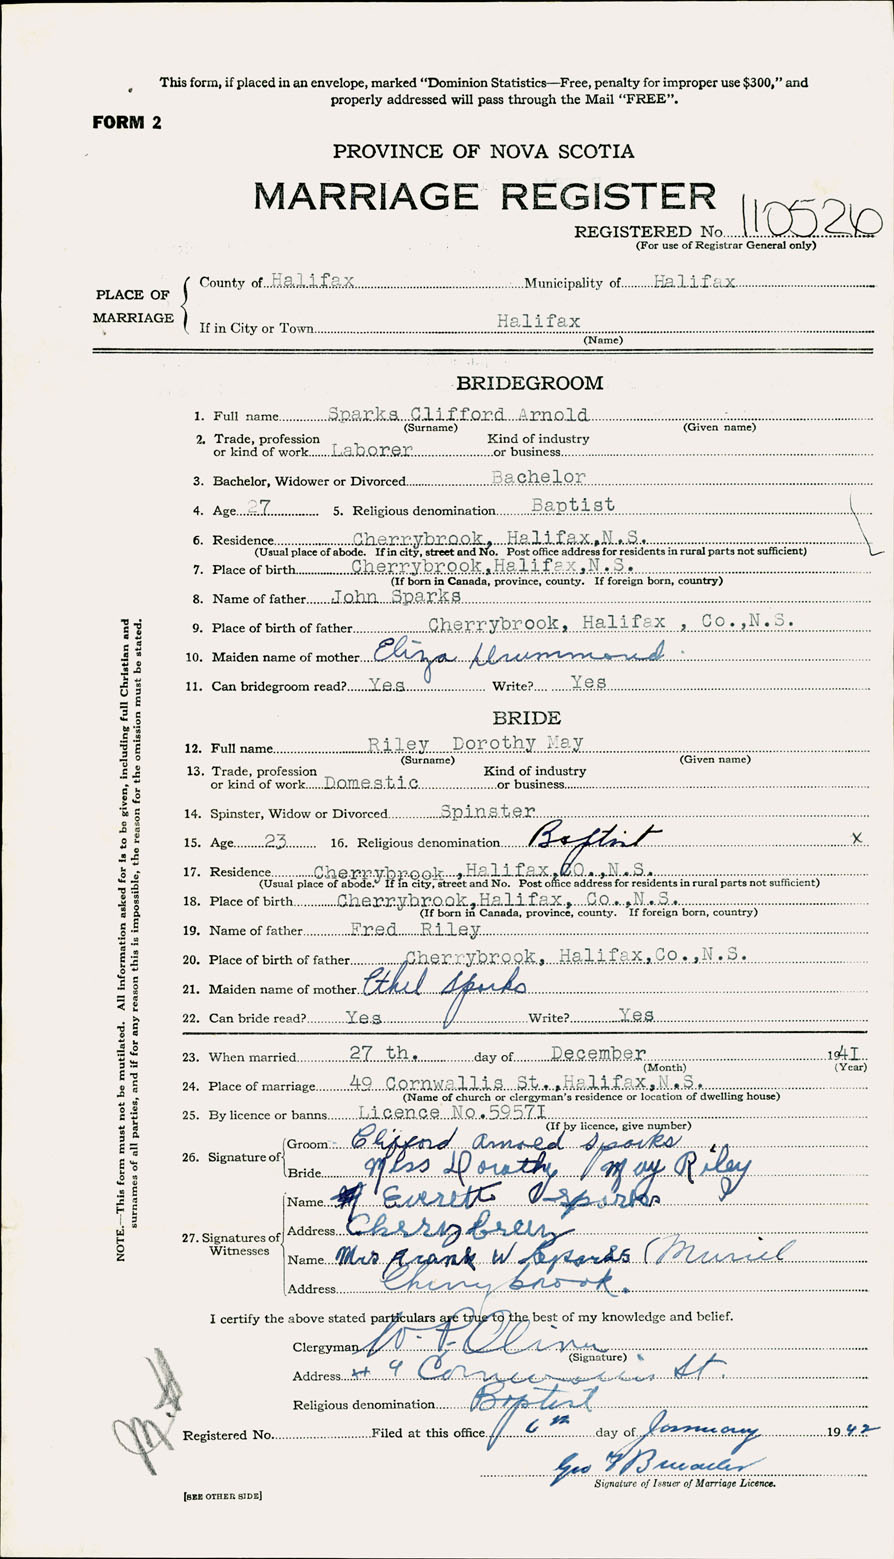 This form, if placed in an envelope, marked "Dominion Statistics—Free, penalty for improper use $300," and
properly addressed will pass through the Mail "FREE".
FORM 2
PROVINCE OF NOVA SCOTIA
MARRIAGE REGISTER
REGISTERED No. 110526
(For use of Registrar General only)
PLACE OF MARRIAGE
County of Halifax Municipality of Halifax
If in City or Town Halifax
(Name)
BRIDEGROOM
1. Full name Sparks Clifford Arnold
(Surname) (Given name)
2. Trade, profession Kind of industry
or kind of work Laborer or business
3. Bachelor, Widower or Divorced Bachelor
4. Age 27 5. Religious denomination Baptist
6. Residence Cherrybrook, Halifax,N.S.
(Usual place of abode. If in city, street and No. Post office address for residents in rural parts not sufficient)
7. Place of birth Cherrybrook,Halifax,N.S.
(If born in Canada, province, county. If foreign born, country)
8. Name of father John Sparks
9. Place of birth of father Cherrybrook, Halifax , Co.,N.S.
10. Maiden name of mother Eliza Drummond
11. Can bridegroom read? Yes Write? Yes
BRIDE
12. Full name Riley Dorothy May
(Surname) (Given name)
13. Trade, profession Kind of industry
or kind of work Domestic or business
14. Spinster, Widow or Divorced Spinster
15. Age 23 16. Religious denomination Baptist x
17. Residence Cherrybrook ,Halifax,CO.,N.S.
(Usual place of abode. If in city, street and No. Post office address for residents in rural parts not sufficient)
18. Place of birth Cherrybrook,Halifax, Co.,N.S.
(If born in Canada, province, county. If foreign born, country)
19. Name of father Fred Riley
20. Place of birth of father Cherrybrook, Halifax,Co.,N.S.
21. Maiden name of mother Ethel Sparks
22. Can bride read? Yes Write? Yes
23. When married 27 th. day of December 1941
(Month) (Year)
24. Place of marriage 49 Cornwallis St.,Halifax,N.S.
(Name of church or clergyman's residence or location of dwelling house)
25. By licence or banns Licence No.59571
(If by licence, give number)
26. Signature of
Groom Clifford Arnold Sparks
Bride Miss Dorothy May Riley
27. Signatures of Witnesses
Name Everett Sparks
Address
Name Mrs Frank W Sparks (Muriel
Address Cherrybrook.
I certify the above stated particulars are true to the best of my knowledge and belief.
Clergyman W. P. Oliver
(Signature)
Address 49 Cornwallis St.
Religious denomination Baptist
Registered No. Filed at this office 6th day of January 1942
Geo
Signature of Issuer of Marriage Licence.
[SEE OTHER SIDE]
NOTE.—This form must not be mutilated. All information asked for is to be given, including full Christian and
surnames of all parties, and if for any reason this is impossible, the reason for the omission must be stated.